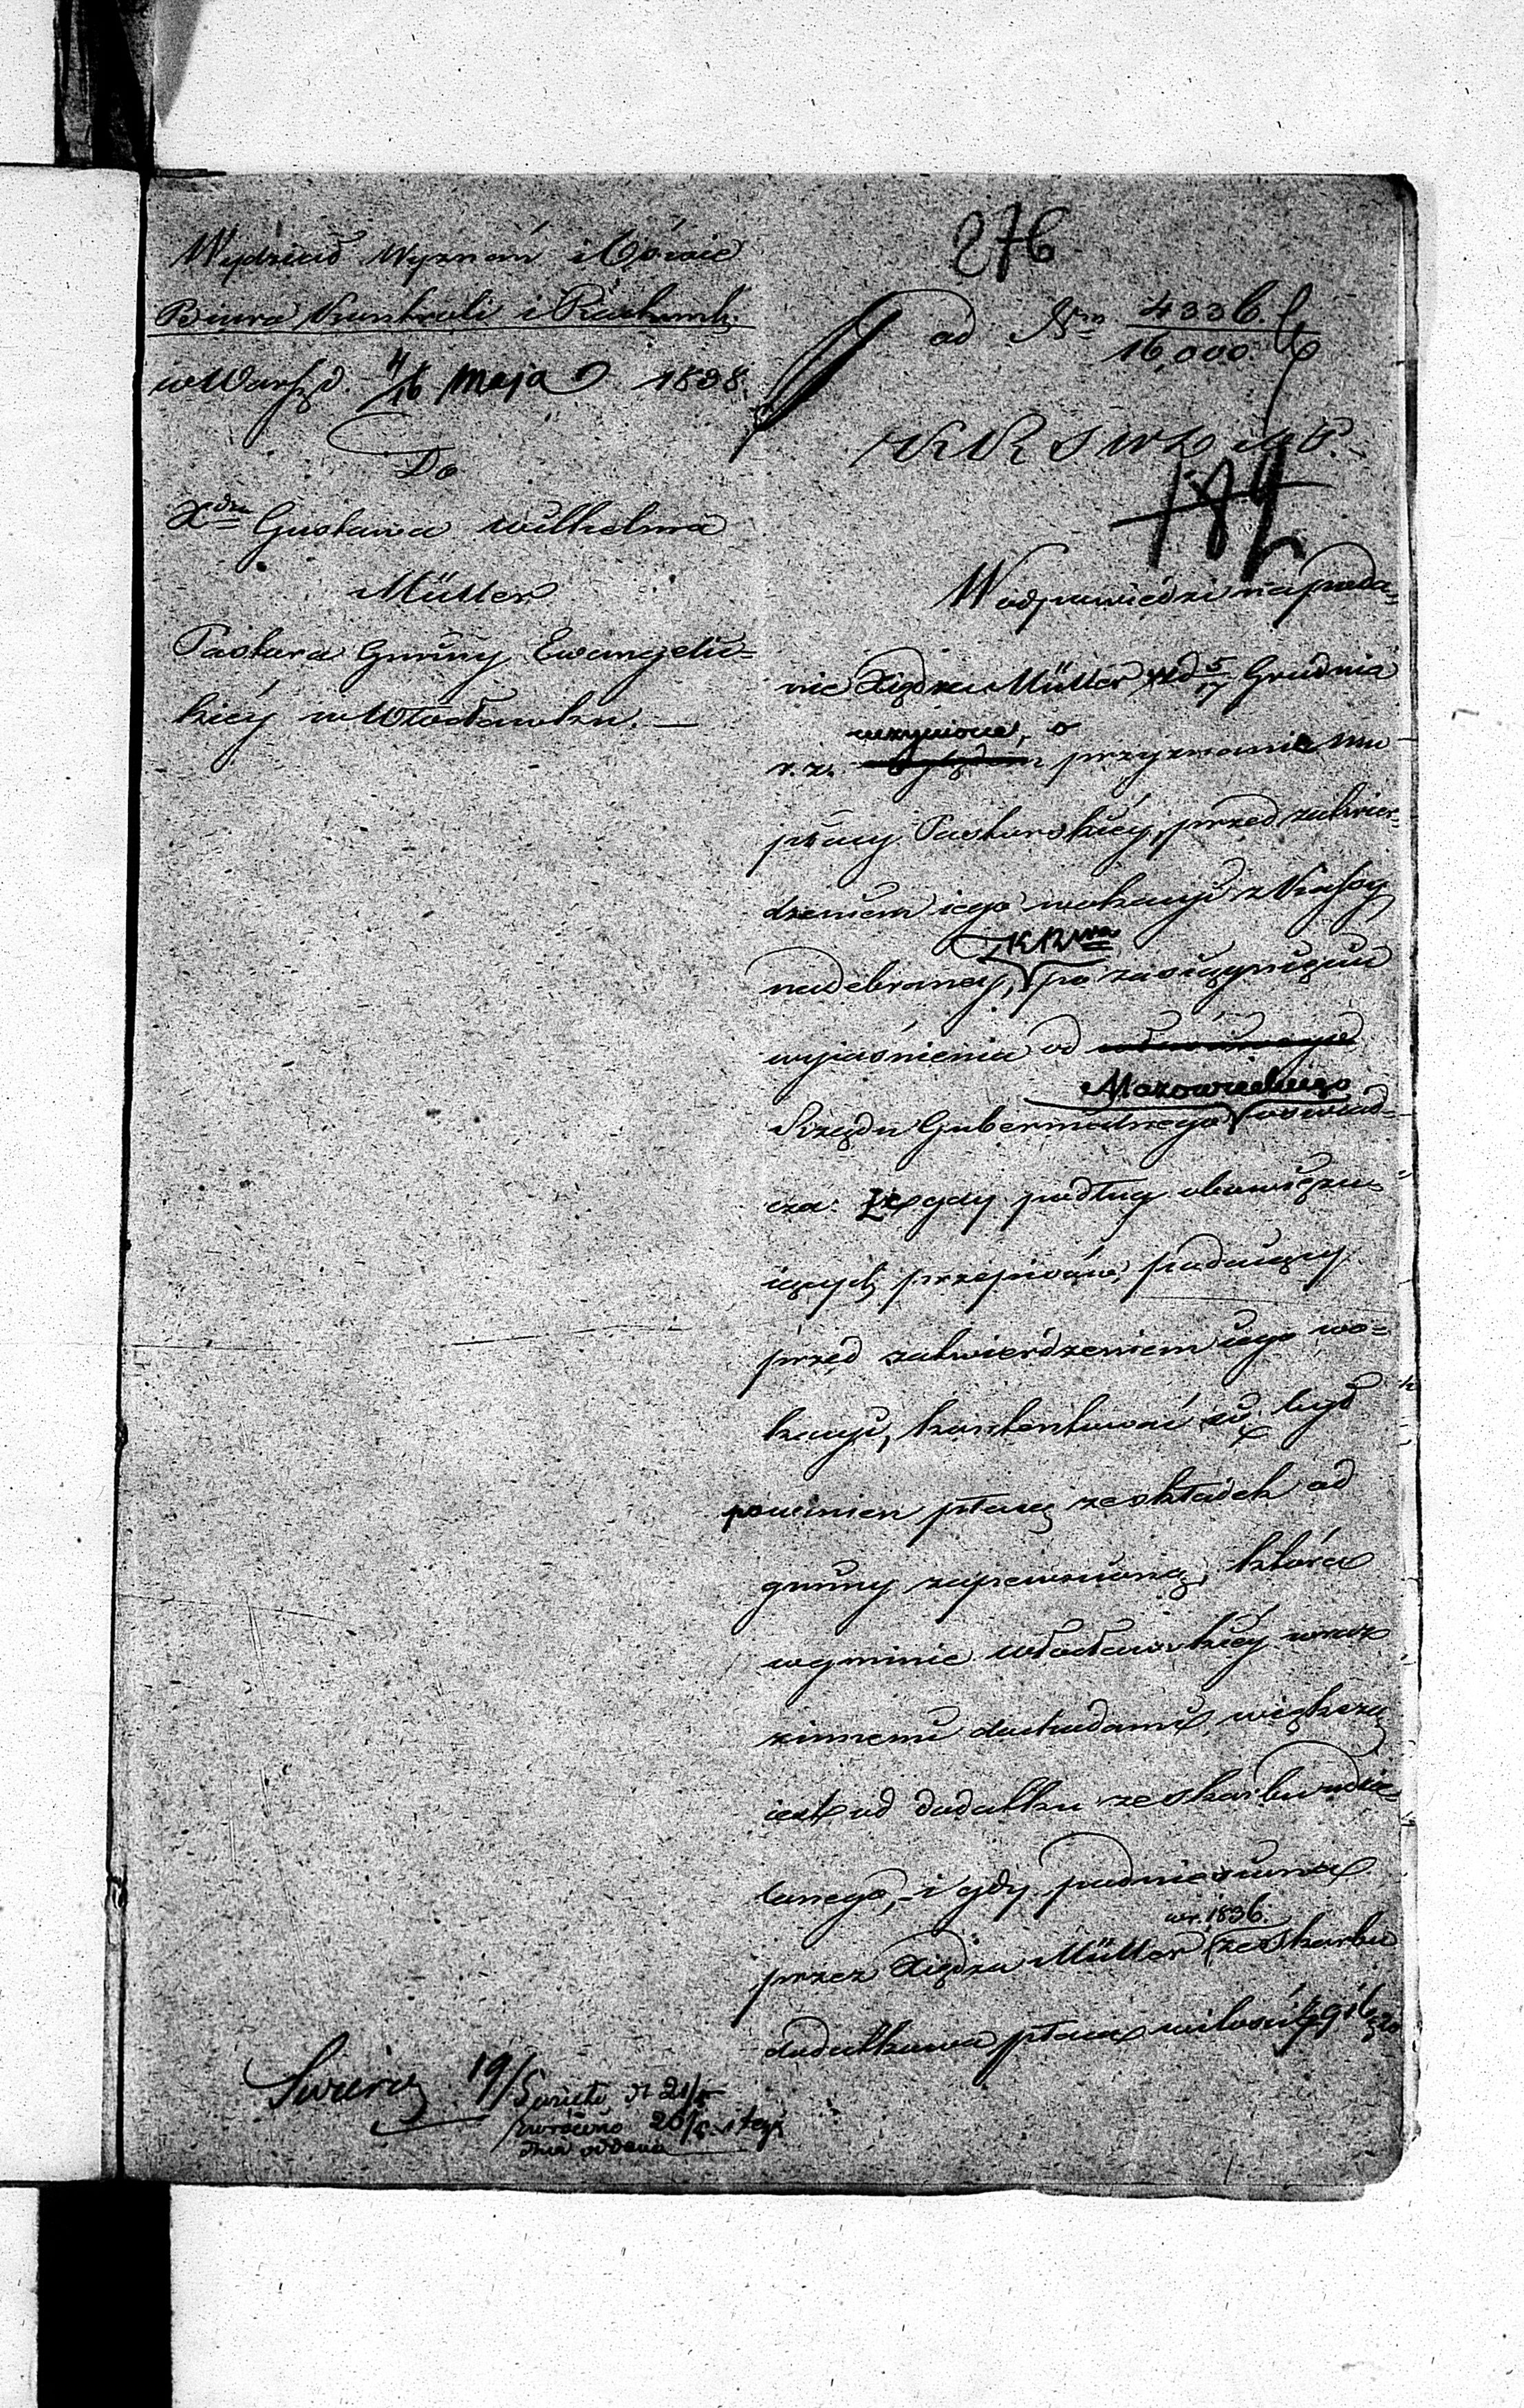 276
Wydział Wyznań i
Biuro Kontroli i Rachunk.
w Warsz. d. 4/16 Maja 1838.
Do
Xdza Gustawa Wilhelma
Müller
Pastora Gminy Ewangelic=
kiéy w Włocławku. —
ad Nrm 4336.
16,000.
K R S W D i O P.
184
W odpowiedzi na poda=
nie Xiędza Müller z d 5/17 Grudnia
uczynione, o
r. z. przyznanie mu
płacy Pastorskiéy, przed zatwier=
dzeniem iego wokacyi z Kassy
KRwa
nadebranej, po zasiągnięciu
wyiaśnienia od
Mazowieckiego
Rządu Gubernialnego oswiad=
cza: że gdy podług obowiązu=
iących przepisów, podaiący
przed zatwierdzeniem iego wo=
kacyi, kontentować się był
powinien płacą ze składek od
gminy zapewnioną, która
w gminie Włocławskiéy wraz
z innemi dochodami, większą
iest od dodatku ze Skarbu udzie=
lanego, i gdy podniesiona
w r. 1836.
przez Xiędza Müller ze Skarbu
dodatkowa płaca w ilości
19/
21/5
26/5 i tegż
dnia oddano